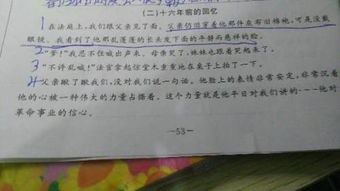 (二)十六年前的回忆
1 在法庭上,我们跟父亲见了面。父亲仍旧穿着他那件灰布旧棉袍,可是没戴
眼镜。我看到了他那乱蓬蓬的长头发下面的平静而慈祥的脸。
2 "爹!"我忍不住喊出声来。母亲哭了,妹妹也跟着哭起来了。
3 "不许乱喊!"法官拿起惊堂木重重地在桌子上拍了一下。
4 父亲瞅了瞅我们,没对我们说一句话。他脸上的表情非常安定,非常沉着
他的心被一种伟大的力量占据着。这个力量就是他平日对我们讲的---他对
革命事业的信心。
—53—